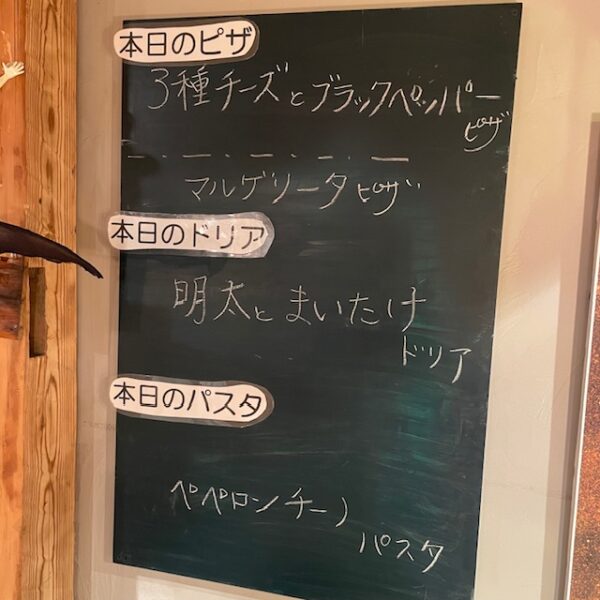 本日のピザ
3種チーズとブラックペッパー
ピザ
マルゲリータピザ
本日のドリア
明太とまいたけ
ドリア
本日のパスタ
ペペロンチーノ
パスタ